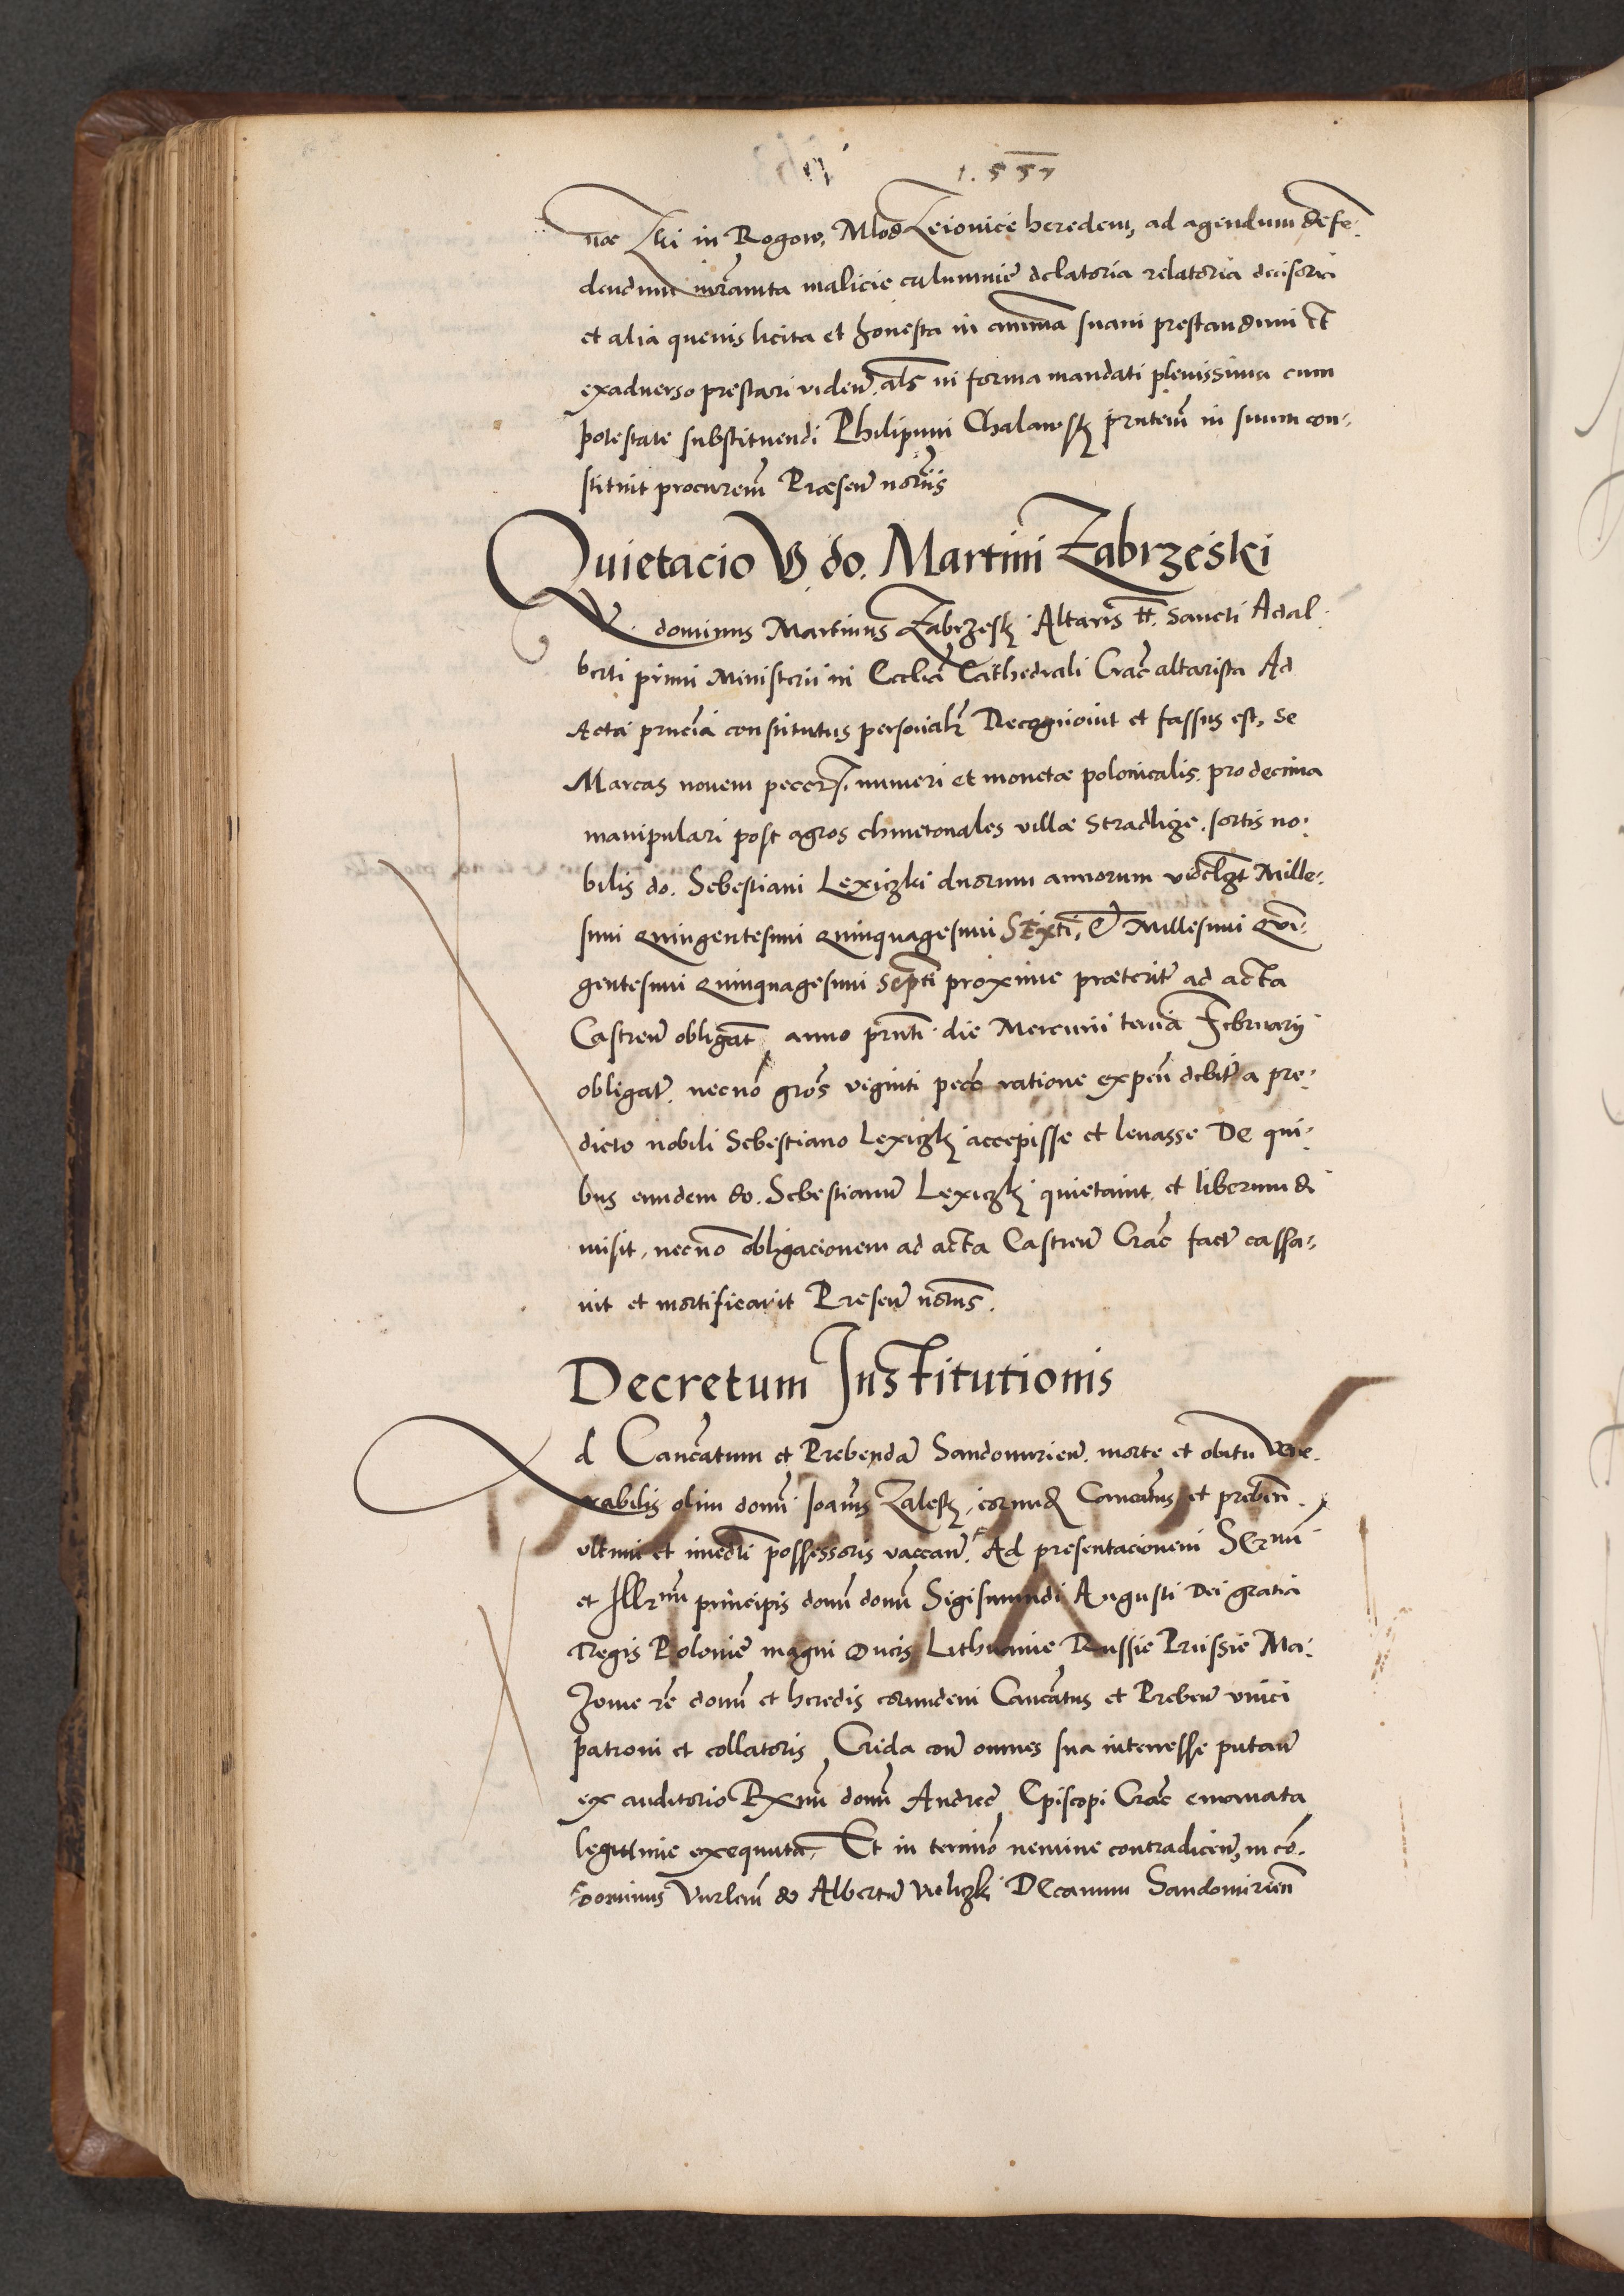 1.557
in Rogow, heredem, ad agendum defe-
dendum malicie calumnie delatoria relatoria decisoria
et alia quevis licita et honesta in animā suam prestandum et
exadverso prestari viden̄. als in forma mandati plenissima cum
potestate substituendi Philipum Chalawsk̨ pn̄tem̄ in suum con-
stituit procurem̄ Præsen̄
Quietacio V do. Martini Zabrzeski
V. dominus Martinus Zabrzesk̨ Altaris tt. Sancti Adal-
berti primi Ministerii in Ecclīa Cathedrali Crac̄ altarista Ad
Acta constitutus personalr̄ Recognovit et fassus est, Se
Marcas novem numeri et monetæ polonicalis. pro decima
manipulari post agros chmetonales villæ sortis no-
bilis do. Sebestiani Lexiczki duorum annorum Mille-
simi Quingentesimi Quinquagesimi Sexti, et Millesimi Qvī-
gentesimi Quinquagesimi Septi proxime præterit̄ ad acta
Castren̄ obligat̄ anno pn̄ti die Mercurii tercia February
obligat̄. necnō gros̄ viginti pecc̄ ratione expen̄ debit̄ a pre-
dicto nobili Sebestiano Lexiczk̨ accepisse et levasse De qui-
bus eundem do. Sebestianū Lexiczk̨ quietavit, et liberum di
misit, necnō obligacionem ad acta Castren̄ Crac̄ fact̄ cassa-
vit et mortificavit Presen̄
Decretum Institutionis
d Canc̄atum et Prebendā Sandomirien̄. morte et obitu Vene-
rabilis olim domī Ioannis Zalesk̨, Canc̄atus et preben̄.
ultimi et imedti possessoris vaccan̄. Ad presentacionem Sermi
et Illrmi principis domī domī Sigismundi Augusti Dei gratia
Regis Polonie magni Ducis Lithuanie Russie Prussie Ma-
zovie domī et heredis eorundem Canc̄atus et Preben̄ unici
patroni et collatoris, Crida con̄ omnes sua interresse putan̄
ex auditorio Rxmi domī Andreæ Episcopi Crac̄ emanata
legittime exequuta. Et in terminō nemine contradicen̄, in cō-
dominus do Albertū Decanum Sandomirien̄